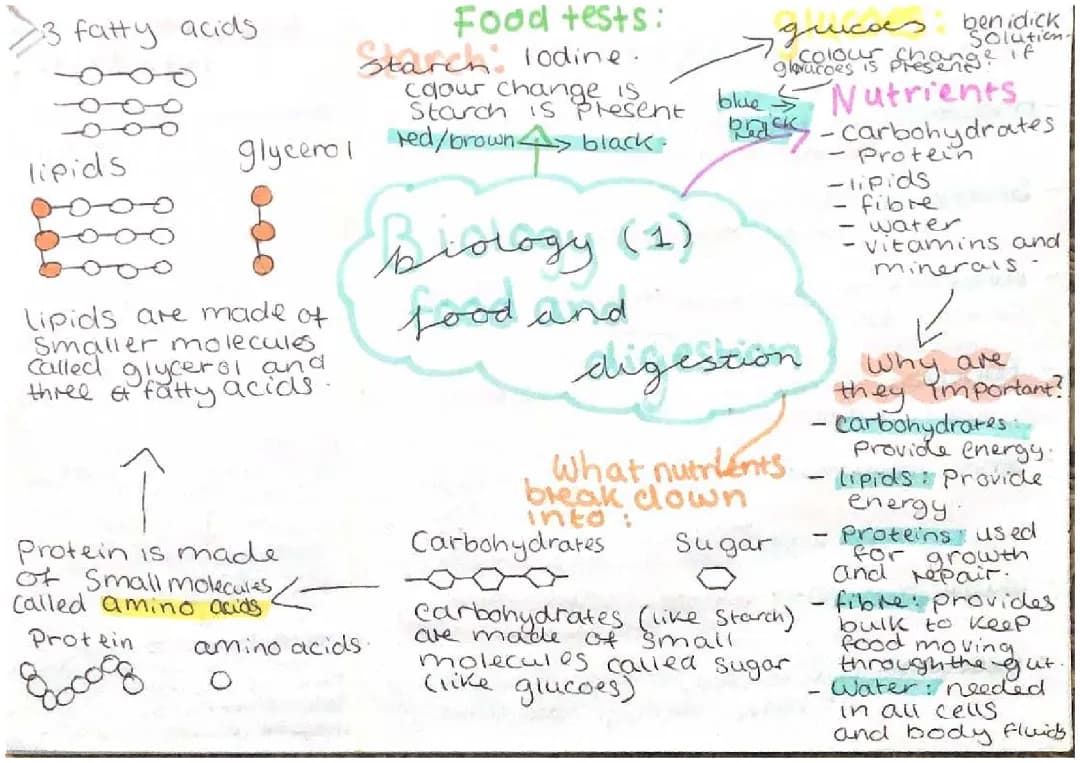 biology (1)
food and
digestion
Food tests:
Starch: Iodine.
colour change is
Starch is present
red/brown → black.
glucoes: benidick
solution.
colour change if
glucoes is present.
blue →
brick
red
Nutrients
- carbohydrates
- Protein
- lipids
- fibre
- water
- vitamins and
minerals.
Why are
they important?
- carbohydrates:
Provide energy.
- lipids: Provide
energy.
- Proteins: used
for growth
and repair.
- fibre: provides
bulk to keep
food moving
through the gut.
- Water: needed
in all cells
and body fluids
What nutrients
break down
into:
Carbohydrates Sugar
carbohydrates (like starch)
are made of small
molecules called sugar
(like glucoes)
Protein is made
of Small molecules
called amino acids
Protein amino acids.
3 fatty acids
lipids glycerol
lipids are made of
smaller molecules
called glycerol and
three fatty acids.